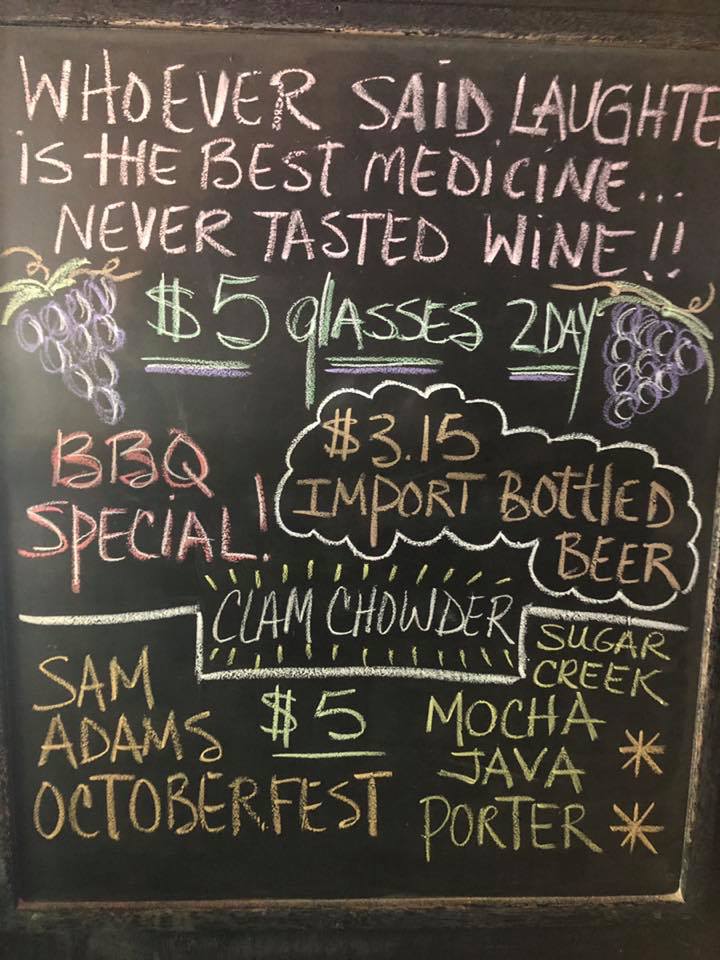 WHOEVER SAID LAUGHTE
iS tHE BEST MEDICINE...
NEVER TASTED WiNE!!
$5 glASSES 2DAY
BBQ
SPECiAL!
$3.15
IMPORT BottlED
BEER
CLAM CHOWDER
SAM
ADAMS
OCTOBERFEST
$5
SUGAR
CREEK
MOCHA
JAVA
PORTER